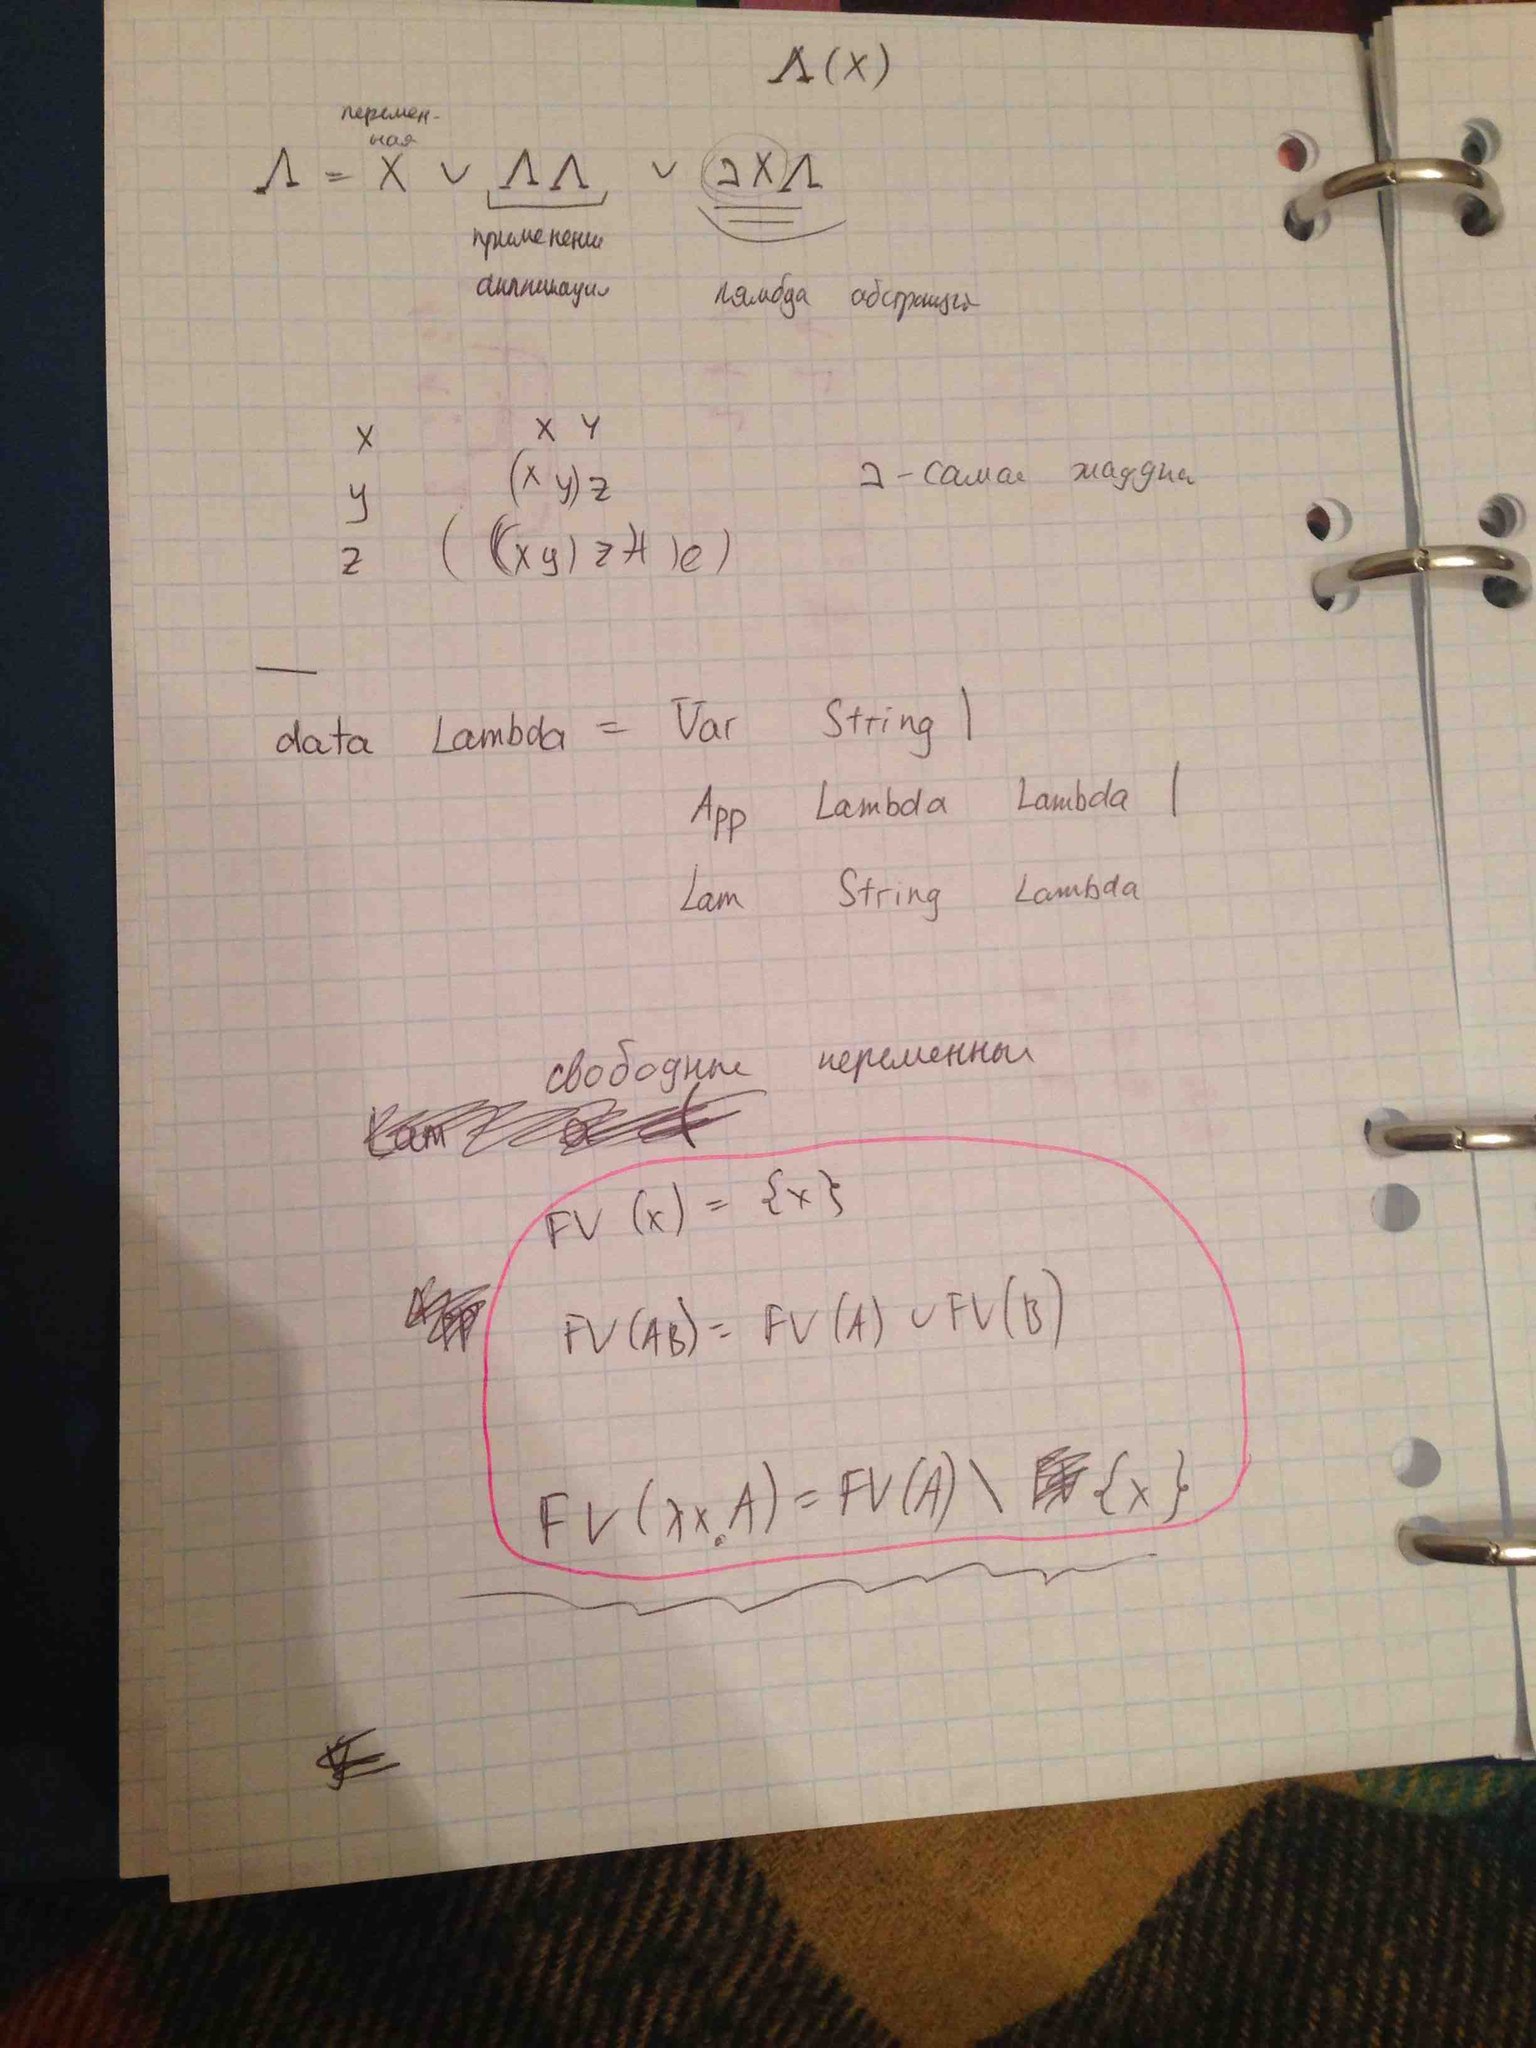 Λ(X)
перемен-
ная
Λ = X ∨ ΛΛ ∨ λXΛ
применение
аппликация лямбда абстракция
x x y
y (x y) z λ - самая жадная
z ( ((x y) z) e )
data Lambda = Var String |
App Lambda Lambda |
Lam String Lambda
свободные переменные
FV (x) = {x}
FV (AB) = FV (A) ∪ FV (B)
FV (λx.A) = FV (A) \ {x}